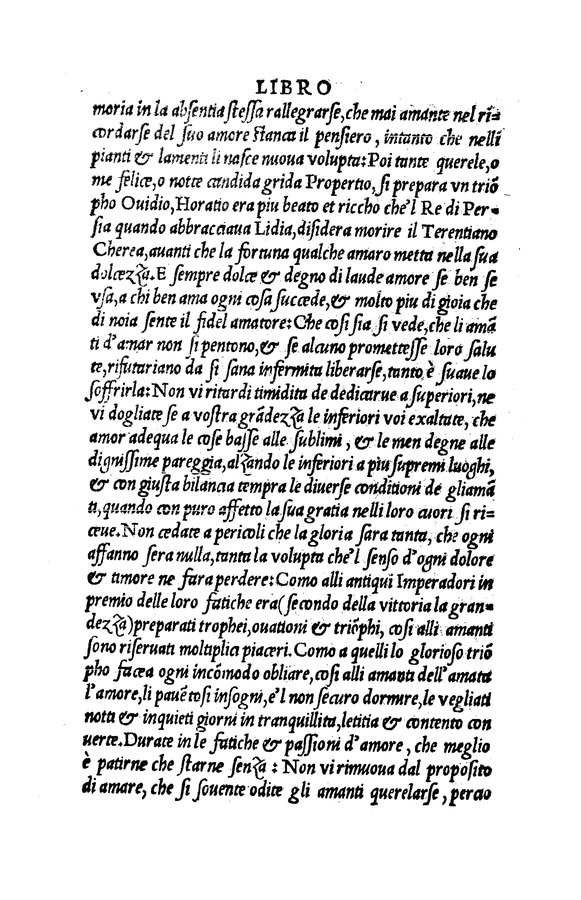 LIBRO
moria in la absentia stessa rallegrarse, che mai amante nel rı̃=
cordarse del suo amore stanca il pensiero, intanto che nelli
pianti & lamenti li nasce nuoua volupta: Poi tante querele, o
me felice, o notte candida grida Propertio, si prepara vn triõ
pho Ouidio, Horatio era piu beato et riccho che'l Re di Per=
sia quando abbracciaua Lidia, disidera morire il Terentiano
Cherea, auanti che la fortuna qualche amaro metta nella sua
dolcezza. E sempre dolce & degno di laude amore se ben se
vsa, a chi ben ama ogni cosa succede, & molto piu di gioia che
di noia sente il fidel amatore: Che cosi sia si vede, che li amã
ti d'amar non si pentono, & se alcuno promettesse loro salu
te, rifiutariano da si sana infermita liberarse, tanto è suaue lo
soffrirla: Non vi ritardi timidita de dedicarue a superiori, ne
vi dogliate se a vostra grãdezza le inferiori voi exaltate, che
amor adequa le cose basse alle sublimi, & le men degne alle
dignissime pareggia, alzando le inferiori a piu supremi luoghi,
& con giusta bilancia tempra le diuerse conditioni de gliamã
ti, quando con puro affetto la sua gratia nelli loro cuori si ri=
ceue. Non cedate a pericoli che la gloria sara tanta, che ogni
affanno sera nulla, tanta la volupta che'l senso d'ogni dolore
& timore ne fara perdere: Como alli antiqui Imperadori in
premio delle loro fatiche era (secondo della vittoria la gran=
dezza) preparati trophei, ouationi & triõphi, cosi alli amanti
sono riseruati moltiplia piaceri. Como a quelli lo glorioso triõ
pho facea ogni incõmodo obliare, cosi alli amanti dell'amata
l'amore, li pauẽtosi insogni, e'l non securo dormire, le vegliati
notti & inquieti giorni in tranquillita, letitia & contento con
uerte. Durate in le fatiche & passioni d'amore, che meglio
è patirne che starne senza: Non vi rimuoua dal proposito
di amare, che si souente odite gli amanti querelarse, percio